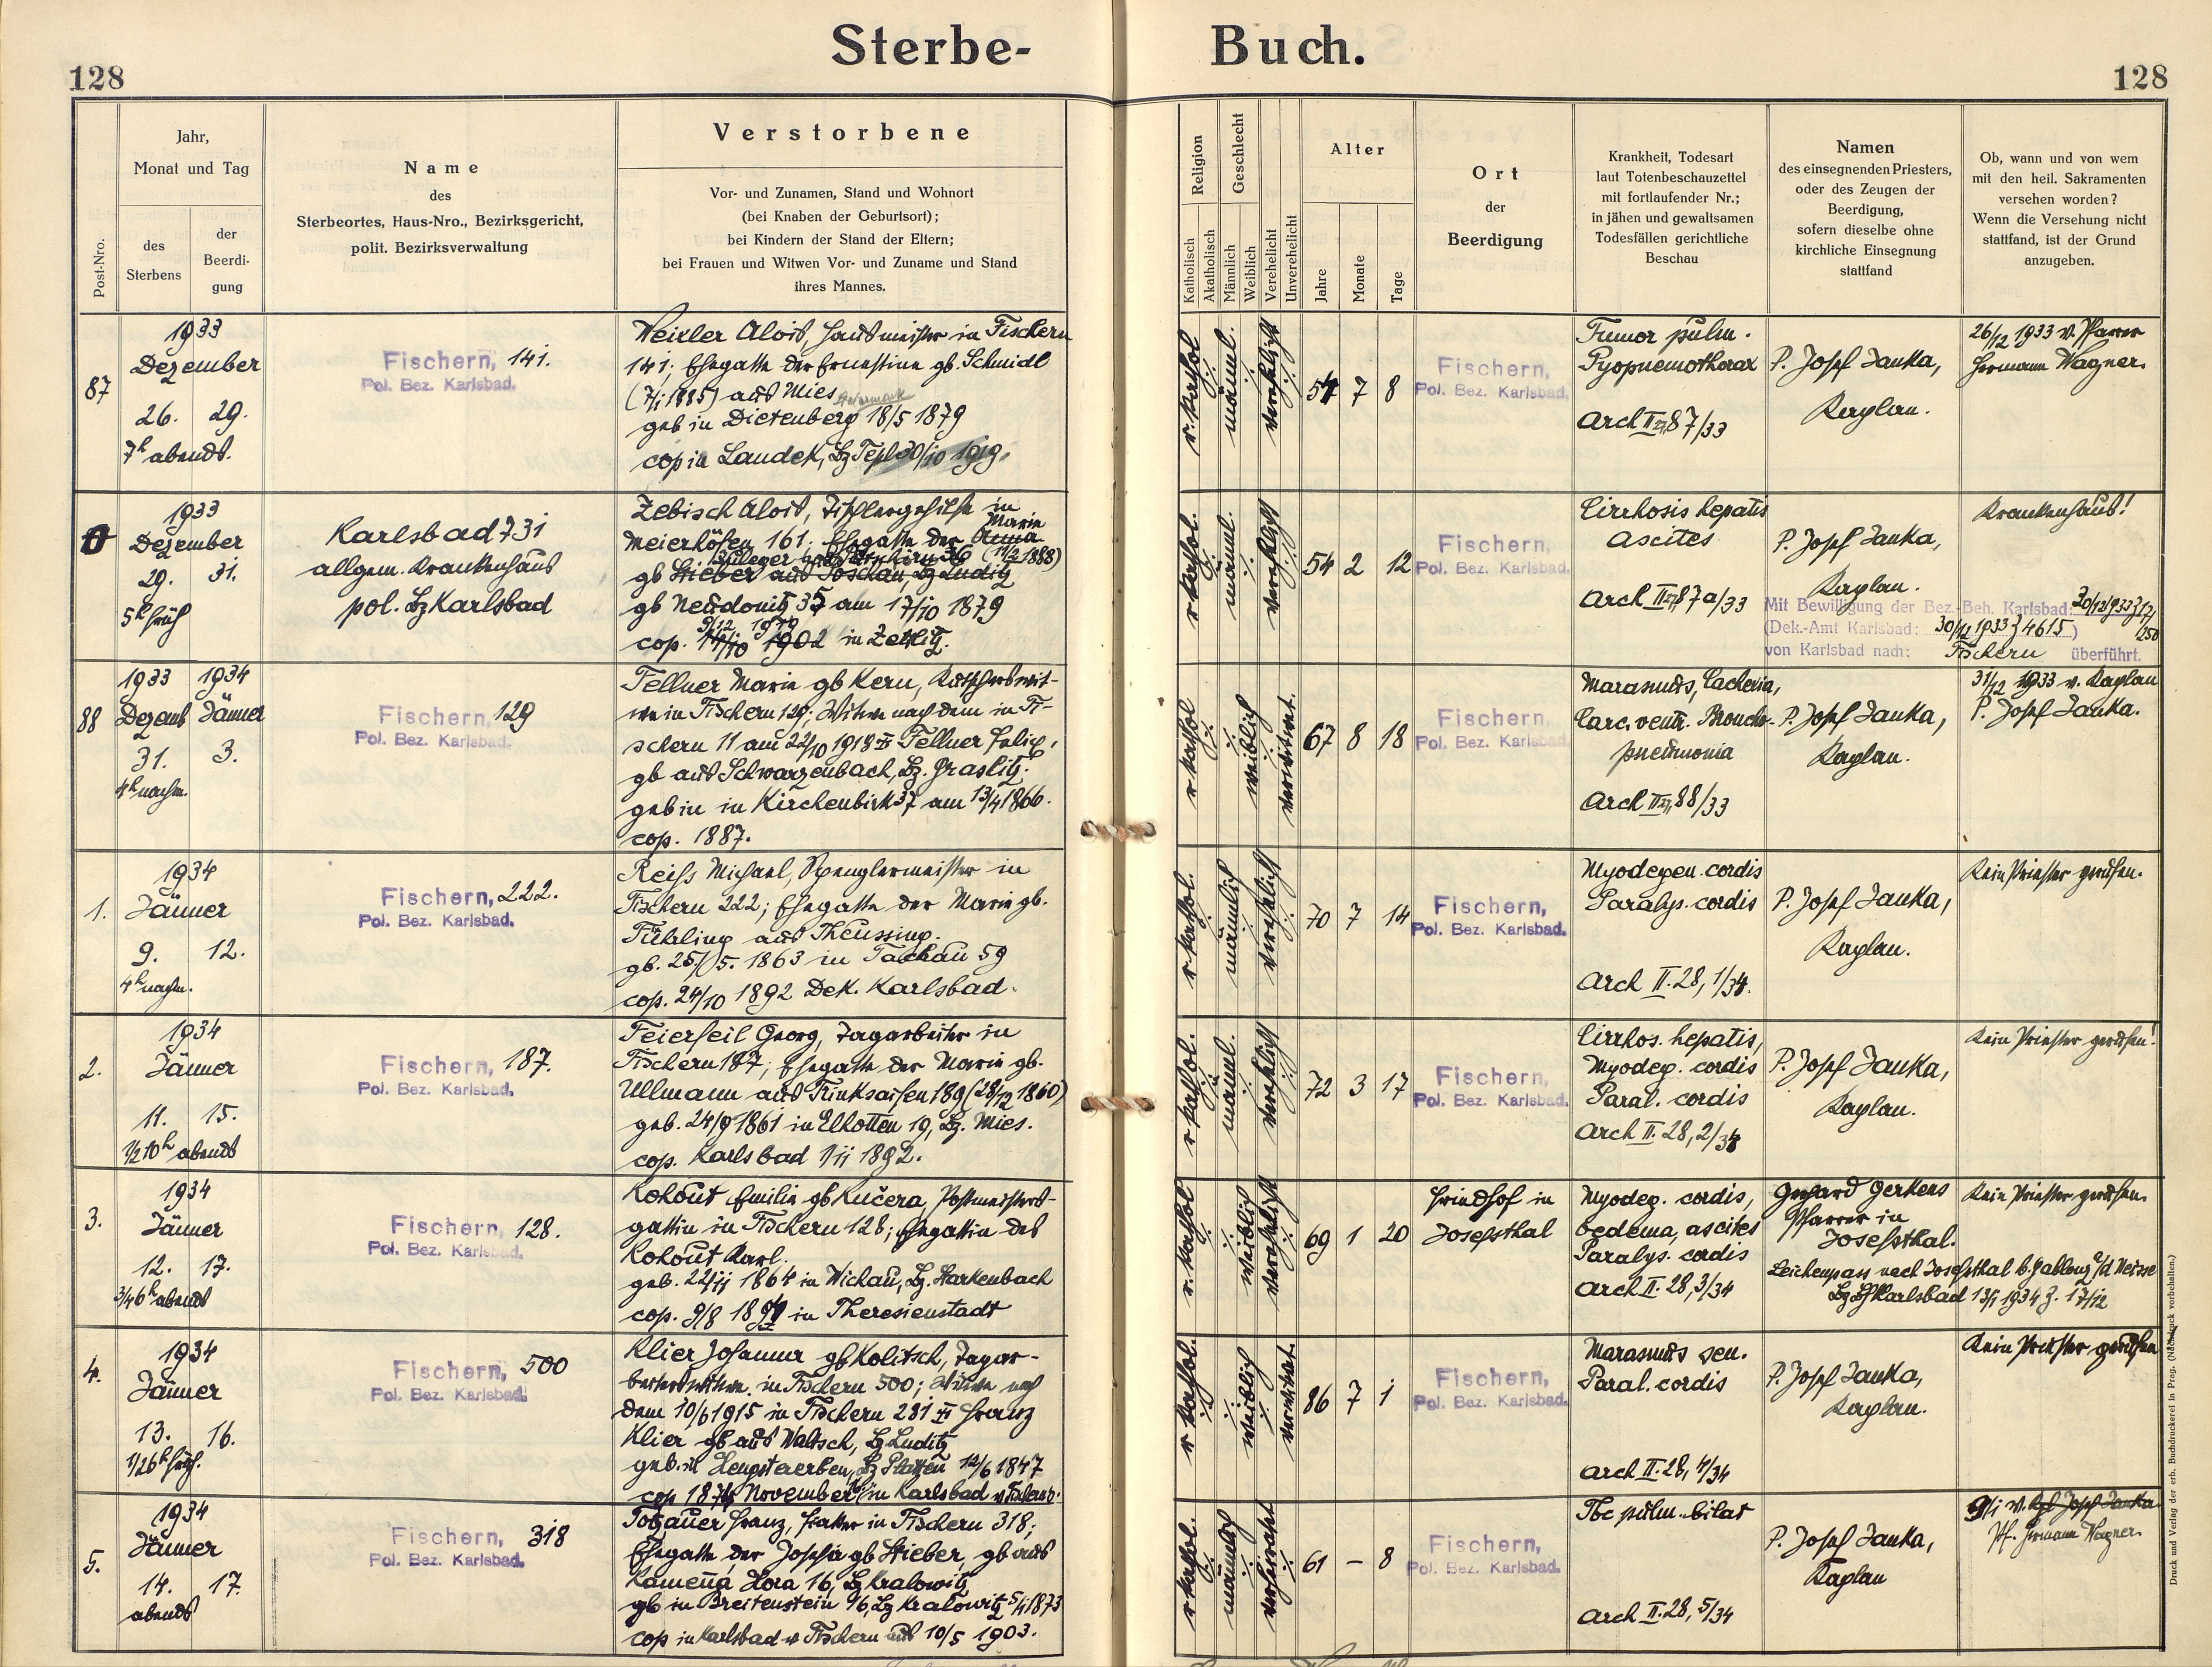 Sterbe- Buch.
128
128
Post-Nro.
Jahr,
Monat und Tag
des
Sterbens
der
Beerdi-
gung
Name
des
Sterbeortes, Haus-Nro., Bezirksgericht,
polit. Bezirksverwaltung
Verstorbene
Vor- und Zunamen, Stand und Wohnort
(bei Knaben der Geburtsort);
bei Kindern der Stand der Eltern;
bei Frauen und Witwen Vor- und Zuname und Stand
ihres Mannes.
Religion
Katholisch
Akatholisch
Geschlecht
Männlich
Weiblich
Verehelicht
Unverehelicht
Alter
Jahre
Monate
Tage
Ort
der
Beerdigung
Krankheit, Todesart
laut Totenbeschauzettel
mit fortlaufender Nr.;
in jähen und gewaltsamen
Todesfällen gerichtliche
Beschau
Namen
des einsegnenden Priesters,
oder des Zeugen der
Beerdigung,
sofern dieselbe ohne
kirchliche Einsegnung
stattfand
Ob, wann und von wem
mit den heil. Sakramenten
versehen worden?
Wenn die Versehung nicht
stattfand, ist der Grund
anzugeben.
87
1933
Dezember
26. 29.
7h abends.
Fischern, 141.
Pol. Bez. Karlsbad.
Alois, Hausmeister in Fischern
141; Ehegatte der Ernestine gb. Schmidl
(7/1 1885) aus Mies
geb in Dietenberg 18/5 1879
cop in Landek, Bz Tepl 30/10 1919.
r. kathol
männl.
verehelicht
54 7 8
Fischern,
Pol. Bez. Karlsbad.
Tumor pulm.
Pyopnemothorax
Arch II 87/33
P. Josef Janka,
Kaplan.
26/12 1933 v. Pfarrer
Hermann Wagner.
1933
Dezember
29. 31.
5h früh
Karlsbad 731
allgem. Krankenhaus
pol. Bz Karlsbad
Zebisch Alois, Tischlergehilfe in
Meierhöfen 161; Ehegatte der Anna
Marie
(11/2 1888)
gb Stieber aus Poschau, Bz Luditz
gb Neudonitz 35 am 17/10 1879
9/12 1919
cop. 1902 in Zettlitz.
r. kathol.
männl.
verehelicht
54 2 12
Fischern,
Pol. Bez. Karlsbad.
Cirrhosis hepatis
ascites
Arch II 87a/33
P. Josef Janka,
Kaplan.
Krankenhaus!
Mit Bewilligung der Bez.-Beh. Karlsbad: 30/12 1933
(Dek.-Amt Karlsbad: 30/12 1933 Z 4615)
von Karlsbad nach: Fischern überführt.
88
1933 1934
Dezemb Jänner
31. 3.
4h nachm.
Fischern, 129
Pol. Bez. Karlsbad.
Fellner Marie gb Kern, Kutscherswit-
we in Fischern 129; Witwe nach dem in Fi-
schern 11 am 22/10 1918 Fellner Felix,
gb aus Schwarzenbach, Bz. Graslitz.
geb in in Kirchenbirk 37 am 13/4 1866.
cop. 1887.
r. kathol
weiblich
verwitwet.
67 8 18
Fischern,
Pol. Bez. Karlsbad.
Marasmus, Cachexia,
Carc. ventr. Broncho-
pneumonia
Arch II 88/33
P. Josef Janka,
Kaplan.
31/12 1933 v. Kaplan
P. Josef Janka.
1.
1934
Jänner
9. 12.
4h nachm.
Fischern, 222.
Pol. Bez. Karlsbad.
Reiss Michael, Spenglermeister in
Fischern 222; Ehegatte der Marie gb.
Tühling aus Theussing.
gb. 25/5. 1863 in Tachau 59
cop. 24/10 1892 Dek. Karlsbad.
r. kathol.
männlich
verehelicht
70 7 14
Fischern,
Pol. Bez. Karlsbad.
Myodegen. cordis
Paralys. cordis
Arch II. 28, 1/34.
P. Josef Janka,
Kaplan.
Kein Priester gerufen.
2.
1934
Jänner
11. 15.
1/2 10h abends
Fischern, 187.
Pol. Bez. Karlsbad.
Feierfeil Georg, Tagarbeiter in
Fischern 187; Ehegatte der Marie gb.
Ullmann aus Trinksaifen 189 (28/12 1860)
geb. 24/9 1861 in Elhotten 19, Bz. Mies.
cop. Karlsbad 1/11 1892.
r. kathol.
männl.
verehelicht
72 3 17
Fischern,
Pol. Bez. Karlsbad.
Cirrhos. hepatis,
Myodeg. cordis
Paral. cordis
Arch II. 28, 2/34
P. Josef Janka,
Kaplan.
Kein Priester gerufen!
3.
1934
Jänner
12. 17.
3/4 6h abends
Fischern, 128.
Pol. Bez. Karlsbad.
Kohout Emilie gb Kučera, Postmeisters-
gattin in Fischern 128; Ehegattin des
Kohout Karl.
geb. 22/11 1864 in Wichau, Bz. Starkenbach
cop. 9/8 in Theresienstadt
r. kathol
weiblich
verehelicht
69 1 20
Friedhof in
Josefsthal
Myodeg. cordis,
oedema, ascites
Paralys. cordis
Arch II. 28, 3/34
Gerhard Gerkens
Pfarrer in
Josefsthal.
Leichenpass nach Josefsthal b. Gablonz a/d Neisse
Karlsbad 13/1 1934 Z. 17/12
Kein Priester gerufen.
4.
1934
Jänner
13. 16.
1/2 6h früh.
Fischern, 500
Pol. Bez. Karlsbad.
Klier Johanna gb Kolitsch, Tagar-
beiterswitwe in Fischern 500; Witwe nach
dem 10/6 1915 in Fischern 281 Franz
Klier gb aus Waltsch, Bz Luditz
geb. in Hengstererben, Bz Platten 12/6 1847
cop 1874 November in Karlsbad
r. kathol.
weiblich
verwitwet.
86 7 1
Fischern,
Pol. Bez. Karlsbad.
Marasmus sen.
Paral. cordis
Arch II. 28, 4/34
P. Josef Janka,
Kaplan.
Kein Priester gerufen
5.
1934
Jänner
14. 17.
abends
Fischern, 318
Pol. Bez. Karlsbad.
Totzauer Franz, in Fischern 318;
Ehegatte der Josefa gb Stieber, gb aus
Kamená Hora 16, Bz Kralowitz
gb in Breitenstein 96, Bz Kralowitz 5/1 1873
cop in Karlsbad Fischern aus 10/5 1903.
r. kathol.
männlich
verheiratet
61 – 8
Fischern,
Pol. Bez. Karlsbad.
Tbc pulm. bilat
Arch II. 28, 5/34
P. Josef Janka,
Kaplan
9/1 v. Kpl Josef Janka
Pf. Hermann Wagner.
Druck und Verlag der erb. Buchdruckerei in Prag. (Nachdruck vorbehalten.)